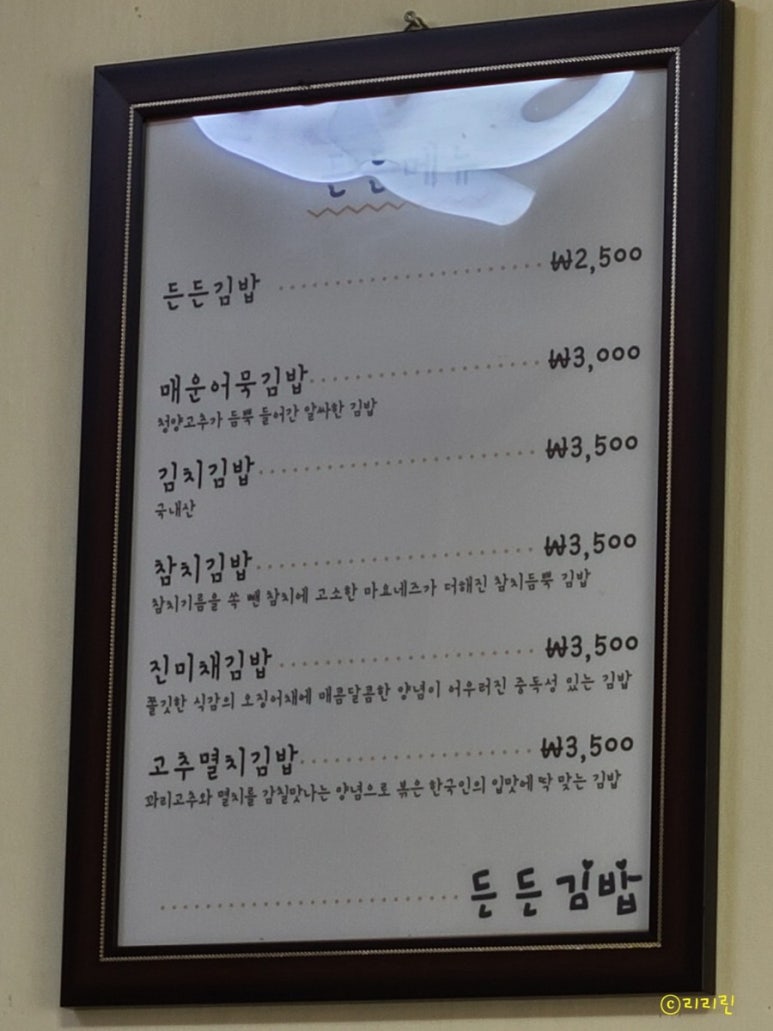 든든메뉴
든든김밥 ₩2,500
매운어묵김밥 ₩3,000
청양고추가 듬뿍 들어간 알싸한 김밥
김치김밥 ₩3,500
국내산
참치김밥 ₩3,500
참치기름을 쏙 뺀 참치에 고소한 마요네즈가 더해진 참치듬뿍 김밥
진미채김밥 ₩3,500
쫄깃한 식감의 오징어채에 매콤달콤한 양념이 어우러진 중독성 있는 김밥
고추멸치김밥 ₩3,500
꽈리고추와 멸치를 감칠맛나는 양념으로 볶은 한국인의 입맛에 딱 맞는 김밥
든든김밥
©리리린